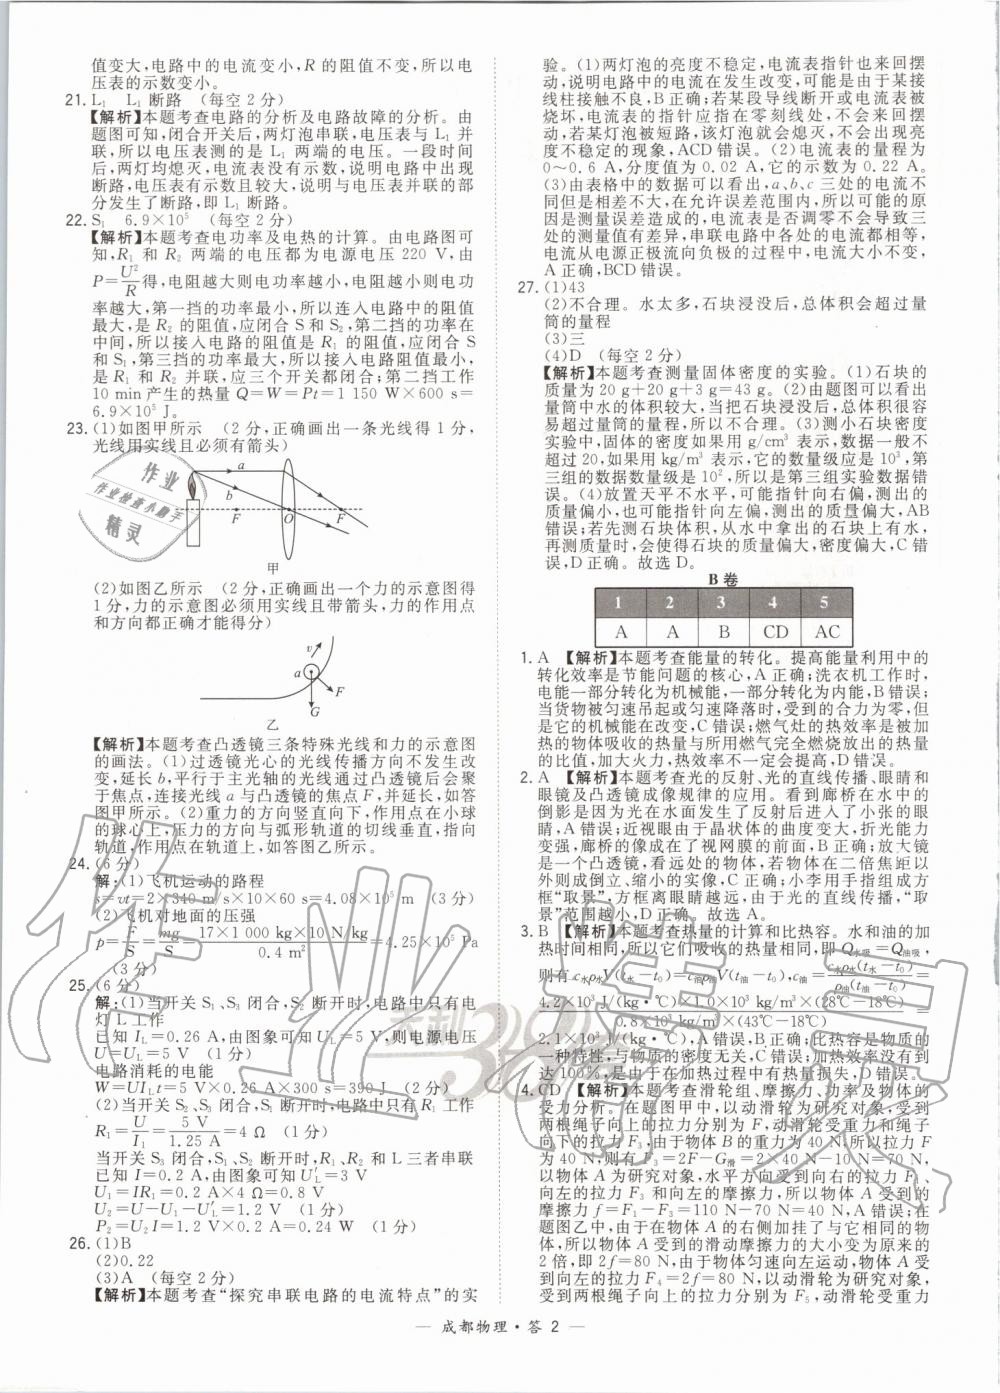 值变大,电路中的电流变小,R 的阻值不变,所以电
压表的示数变小。
21. L₁　L₁ 断路　(每空 2 分)
【解析】本题考查电路的分析及电路故障的分析。由
题图可知,闭合开关后,两灯泡串联,电压表与 L₁ 并
联,所以电压表测的是 L₁ 两端的电压。一段时间
后,两灯均熄灭,电流表没有示数,说明电路中出现
断路,电压表有示数且较大,说明与电压表并联的部
分发生了断路,即 L₁ 断路。
22. S₁　6.9×10⁵　(每空 2 分)
【解析】本题考查电功率及电热的计算。由电路图可
知,R₁ 和 R₂ 两端的电压都为电源电压 220 V,由
P=U²/R得,电阻越大则电功率越小,电阻越小则电功
率越大,第一挡的功率最小,所以连入电路中的阻值
最大,是 R₂ 的阻值,应闭合 S 和 S₂,第二挡的功率在
中间,所以接入电路的阻值是 R₁ 的阻值,应闭合 S
和 S₁,第三挡的功率最大,所以接入电路阻值最小,
是 R₁ 和 R₂ 并联,应三个开关都闭合;第二挡工作
10 min 产生的热量 Q=W=Pt=1 150 W×600 s=
6.9×10⁵ J。
23. (1)如图甲所示　(2 分,正确画出一条光线得 1 分,
光线用实线且必须有箭头)
a
b
F
O
F
甲
(2)如图乙所示　(2 分,正确画出一个力的示意图得
1 分,力的示意图必须用实线且带箭头,力的作用点
和方向都正确才能得分)
v
a
F
G
乙
【解析】本题考查凸透镜三条特殊光线和力的示意图
的画法。(1)过透镜光心的光线传播方向不发生改
变,延长 b,平行于主光轴的光线通过凸透镜后会聚
于焦点,连接光线 a 与凸透镜的焦点 F,并延长,如答
图甲所示。(2)重力的方向竖直向下,作用点在小球
的球心上,压力的方向与弧形轨道的切线垂直,指向
轨道,作用点在轨道上,如答图乙所示。
24. (6 分)
解:(1)飞机运动的路程
s=vt=2×340 m/s×10×60 s=4.08×10⁵ m　(3 分)
(2)飞机对地面的压强
p=F/S=mg/S=17×1 000 kg×10 N/kg/0.4 m²=4.25×10⁵ Pa
(3 分)
25. (6 分)
解:(1)当开关 S₁、S₃ 闭合,S₂ 断开时,电路中只有电
灯 L 工作
已知 I_L=0.26 A,由图象可知 U_L=5 V,则电源电压
U=U_L=5 V　(1 分)
电路消耗的电能
W=UI_Lt=5 V×0.26 A×300 s=390 J　(2 分)
(2)当开关 S₂、S₃ 闭合,S₁ 断开时,电路中只有 R₁ 工作
R₁=U/I₁=5 V/1.25 A=4 Ω　(1 分)
当开关 S₃ 闭合,S₁、S₂ 断开时,R₁、R₂ 和 L 三者串联
已知 I=0.2 A,由图象可知 U′_L=3 V
U₁=IR₁=0.2 A×4 Ω=0.8 V
U₂=U−U₁−U′_L=1.2 V　(1 分)
P₂=U₂I=1.2 V×0.2 A=0.24 W　(1 分)
26. (1)B
(2)0.22
(3)A　(每空 2 分)
【解析】本题考查“探究串联电路的电流特点”的实
验。(1)两灯泡的亮度不稳定,电流表指针也来回摆
动,说明电路中的电流在发生改变,可能是由于某接
线柱接触不良,B 正确;若某段导线断开或电流表被
烧坏,电流表的指针应指在零刻线处,不会来回摆
动,若某灯泡被短路,该灯泡就会熄灭,不会出现亮
度不稳定的现象,ACD 错误。(2)电流表的量程为
0～0.6 A,分度值为 0.02 A,它的示数为 0.22 A。
(3)由表格中的数据可以看出,a、b、c 三处的电流不
同但是相差不大,在允许误差范围内,所以可能的原
因是测量误差造成的,电流表是否调零不会导致三
处的测量值有差异,串联电路中各处的电流都相等,
电流从电源正极流向负极的过程中,电流大小不变,
A 正确,BCD 错误。
27. (1)43
(2)不合理。水太多,石块浸没后,总体积会超过量
筒的量程
(3)三
(4)D　(每空 2 分)
【解析】本题考查测量固体密度的实验。(1)石块的
质量为 20 g+20 g+3 g=43 g。(2)由题图可以看出
量筒中水的体积较大,当把石块浸没后,总体积很容
易超过量筒的量程,所以不合理。(3)测小石块密度
实验中,固体的密度如果用 g/cm³ 表示,数据一般不
超过 20,如果用 kg/m³ 表示,它的数量级应是 10³,第
三组的数据数量级是 10²,所以是第三组实验数据错
误。(4)放置天平不水平,可能指针向右偏,测出的
质量偏小,也可能指针向左偏,测出的质量偏大,AB
错误;若先测石块体积,从水中拿出的石块上有水,
再测质量时,会使得石块的质量偏大,密度偏大,C 错
误,D 正确。故选 D。
B 卷
1 2 3 4 5
A A B CD AC
1. A 【解析】本题考查能量的转化。提高能量利用中的
转化效率是节能问题的核心,A 正确;洗衣机工作时,
电能一部分转化为机械能,一部分转化为内能,B 错误;
当货物被匀速吊起或匀速降落时,受到的合力为零,但
是它的机械能在改变,C 错误;燃气灶的热效率是被加
热的物体吸收的热量与所用燃气完全燃烧放出的热量
的比值,加大火力,热效率不一定会提高,D 错误。
2. A 【解析】本题考查光的反射、光的直线传播、眼睛和
眼镜及凸透镜成像规律的应用。看到廊桥在水中的
倒影是因为光在水面发生了反射后进入了小张的眼
睛,A 错误;近视眼由于晶状体的曲度变大,折光能力
变强,廊桥的像成在了视网膜的前面,B 正确;放大镜
是一个凸透镜,看远处的物体,若物体在二倍焦距以
外则成倒立、缩小的实像,C 正确;小李用手指组成方
框“取景”,方框离眼睛越远,由于光的直线传播,“取
景”范围越小,D 正确。故选 A。
3. B 【解析】本题考查热量的计算和比热容。水和油的加
热时间相同,所以它们吸收的热量相同,即 Q水吸=Q油吸,
则有 c水ρ水V(t水−t₀)=c油ρ油V(t油−t₀),c油=c水ρ水(t水−t₀)/ρ油(t油−t₀)=
4.2×10³ J/(kg·℃)×1.0×10³ kg/m³×(28℃−18℃)/0.8×10³ kg/m³×(43℃−18℃)=
2.1×10³ J/(kg·℃),A 错误,B 正确;比热容是物质的
一种特性,与物质的密度无关,C 错误;加热效率没有到
达 100%,是由于在加热过程中有热量损失,D 错误。
4. CD 【解析】本题考查滑轮组、摩擦力、功率及物体的
受力分析。在题图甲中,以动滑轮为研究对象,受到
两根绳子向上的拉力分别为 F,动滑轮受重力和绳子
向下的拉力 F₃,由于物体 B 的重力为 40 N,所以拉力 F
为 40 N,则有 F₃=2F−G滑=2×40 N−10 N=70 N,
以物体 A 为研究对象,水平方向受到向右的拉力 F₁、
向左的拉力 F₃ 和向左的摩擦力,所以物体 A 受到的
摩擦力 f=F₁−F₃=110 N−70 N=40 N,A 错误;在
题图乙中,由于在物体 A 的右侧加挂了与它相同的物
体,所以物体 A 受到的滑动摩擦力的大小变为原来的
2 倍,即 2f=80 N,由于物体匀速向左运动,物体 A 受
到的拉力 F₄=2f=80 N,以动滑轮为研究对象,
受到两根绳子向上的拉力分别为 F₅,动滑轮受重力
— 成都物理·答 2 —
作业
作业检查小助手
精灵